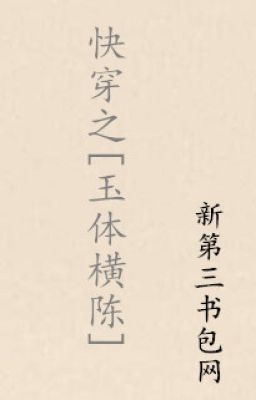 快穿之[玉体横陈]
新第三书包网